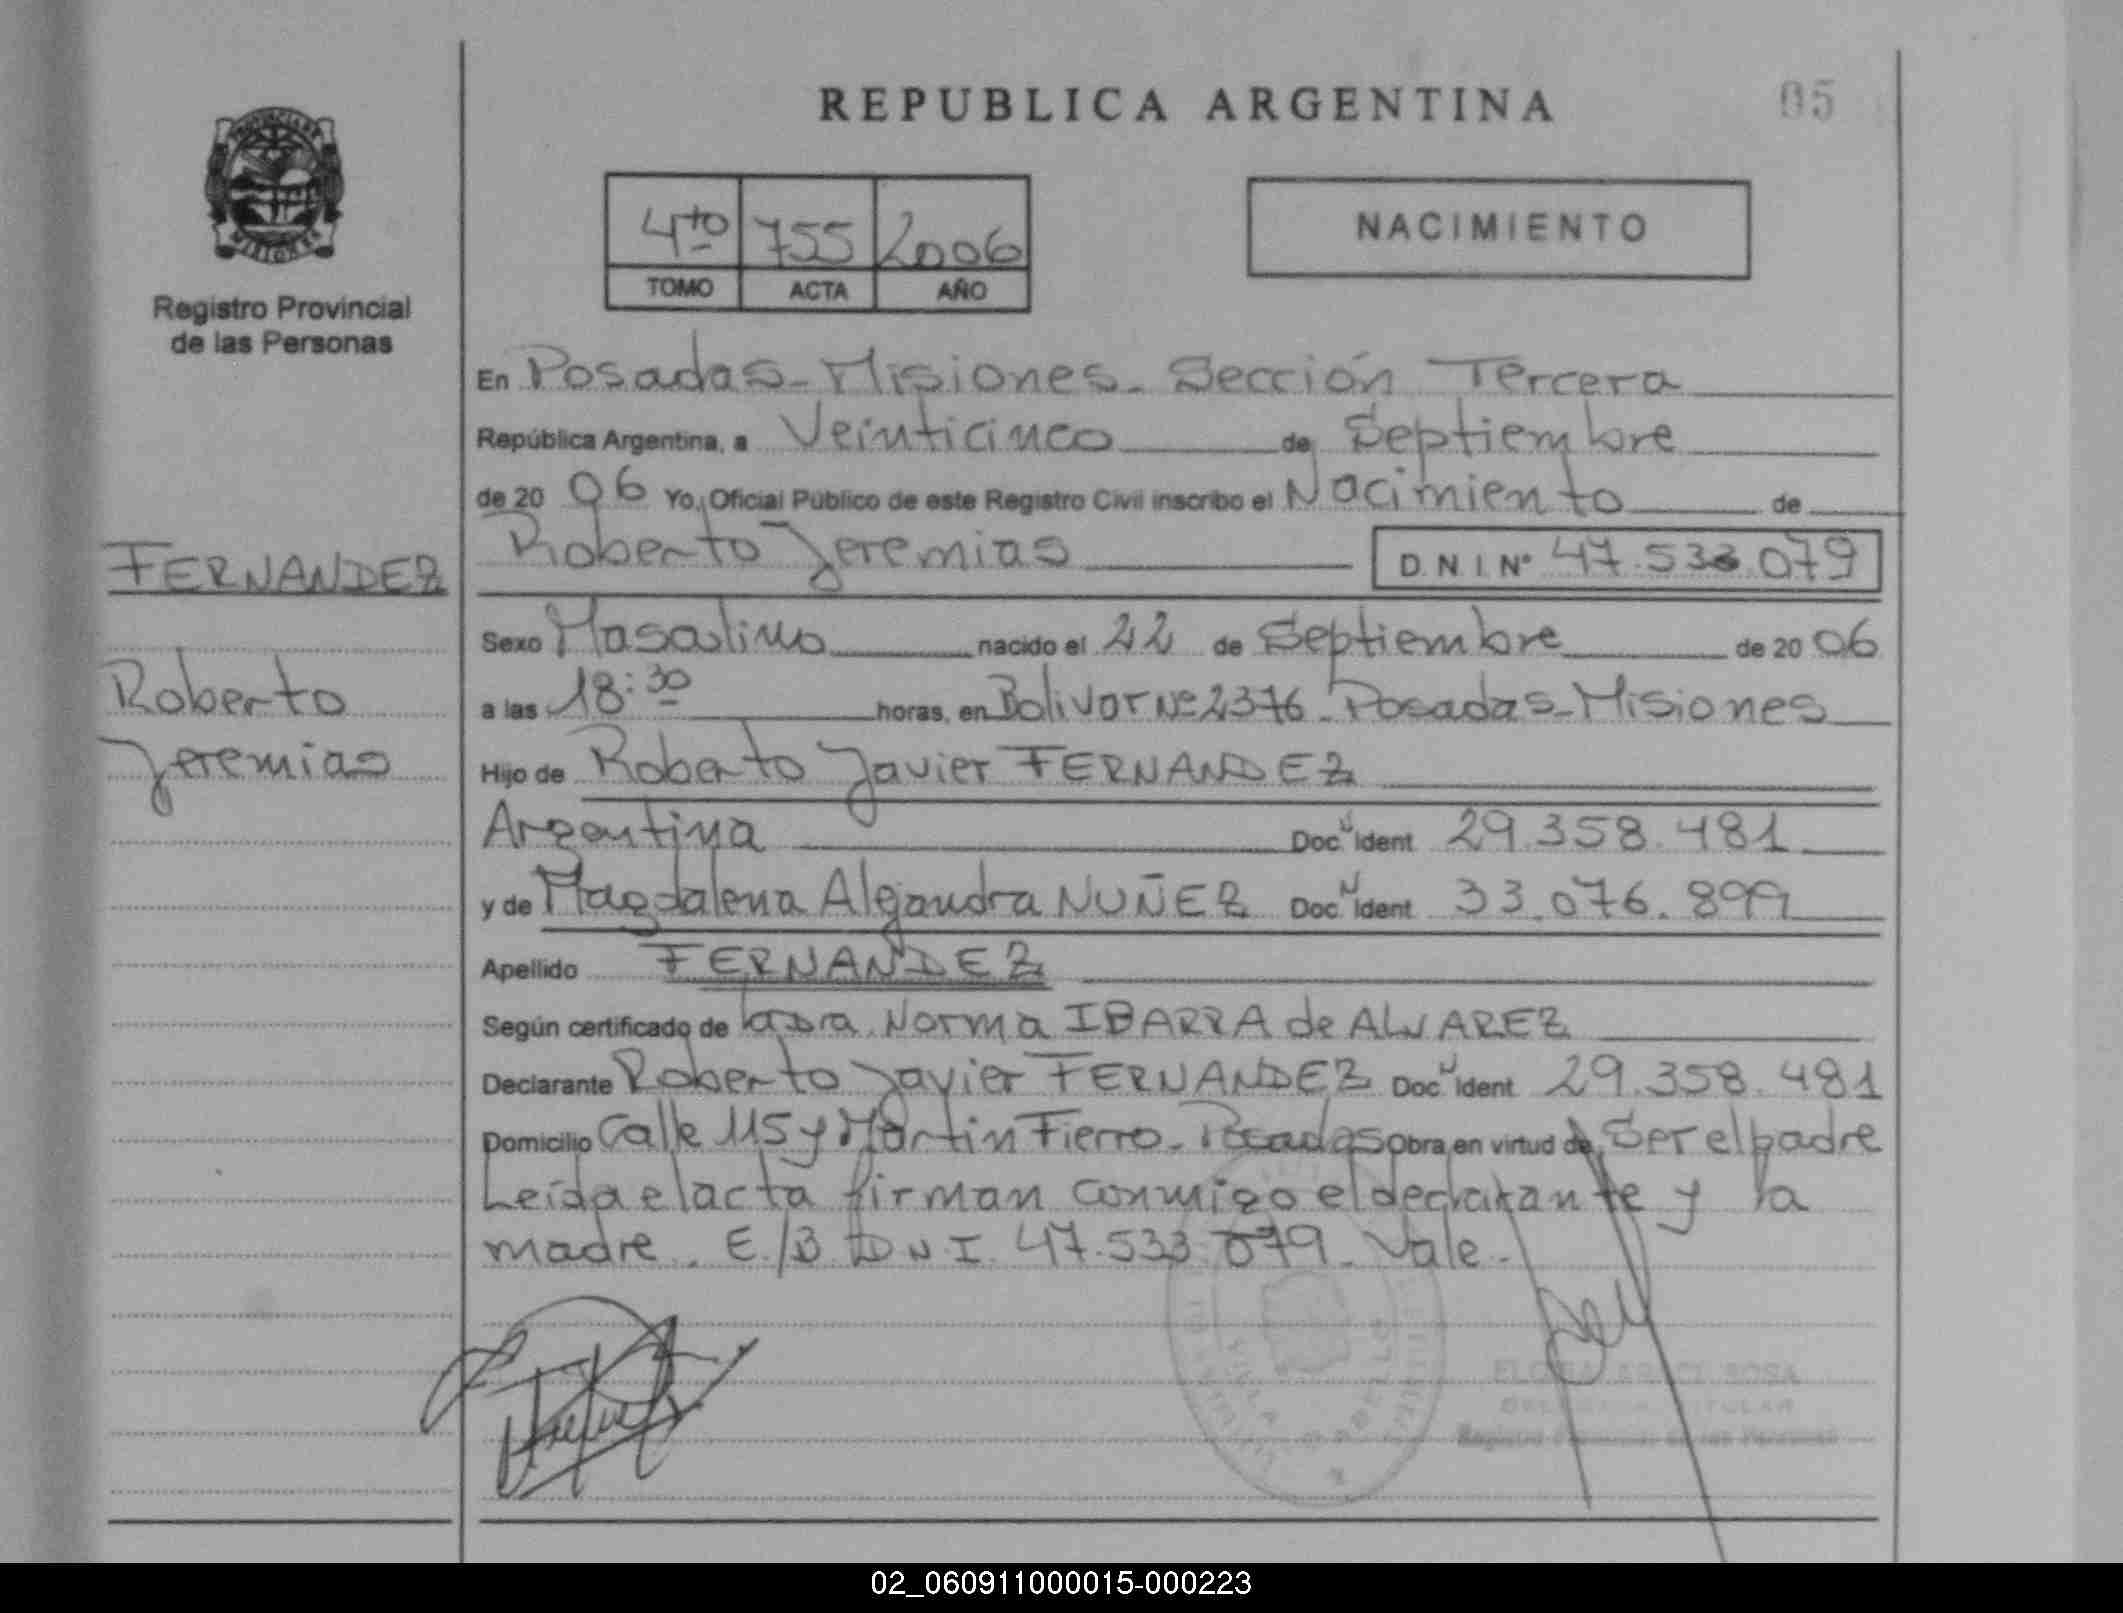 REPUBLICA ARGENTINA
05
PROVINCIA DE
MISIONES
Registro Provincial
de las Personas
4to 755 2006
TOMO ACTA AÑO
NACIMIENTO
En Posadas - Misiones - Sección Tercera
República Argentina, a Veinticinco de Septiembre
de 20 06 Yo, Oficial Público de este Registro Civil inscribo el Nacimiento de
Roberto Jeremias D.N.I. Nº 47.533.079
FERNANDEZ
Roberto
Jeremias
Sexo Masculino nacido el 22 de Septiembre de 20 06
a las 18:30 horas, en Bolivar Nº 2376 - Posadas - Misiones
Hijo de Roberto Javier FERNANDEZ
Argentina Doc. Ident 29.358.481
y de Magdalena Alejandra NUÑEZ Doc. Ident 33.076.899
Apellido FERNANDEZ
Según certificado de la Dra. Norma IBARRA de ALVAREZ
Declarante Roberto Javier FERNANDEZ Doc. Ident 29.358.481
Domicilio Calle 115 y Martin Fierro - Posadas Obra en virtud de Ser el padre
Leída el acta firman conmigo el declarante y la
madre. E/B D.N.I. 47.533.079 - Vale -
SOSA
TITULAR
02_060911000015-000223